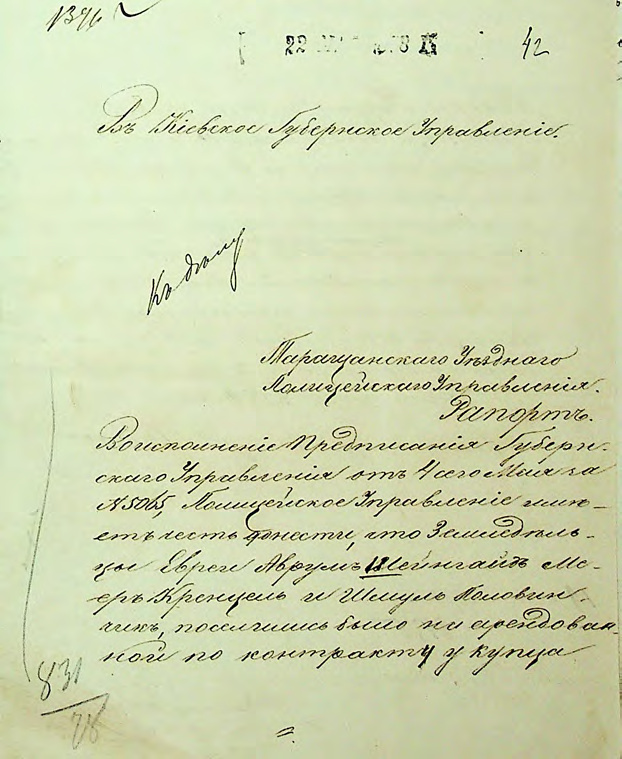 1396
22 МАЯ 18
42
Въ Кіевское Губернское Управленіе.
Къ дѣлу
Таращанскаго Уѣзднаго
Полицейскаго Управленія.
Рапортъ.
Во исполненіе Предписанія Губерн-
скаго Управленія отъ 4 сего Мая за
N 5065, Полицейское Управленіе имѣ-
етъ честь донести, что Земледѣль-
цы Евреи Аврумъ Шейнгайтъ Ме-
еръ Кренцель и Шмуль Половин-
чикъ, поселились было на арендован-
ной по контракту у купца
831
78